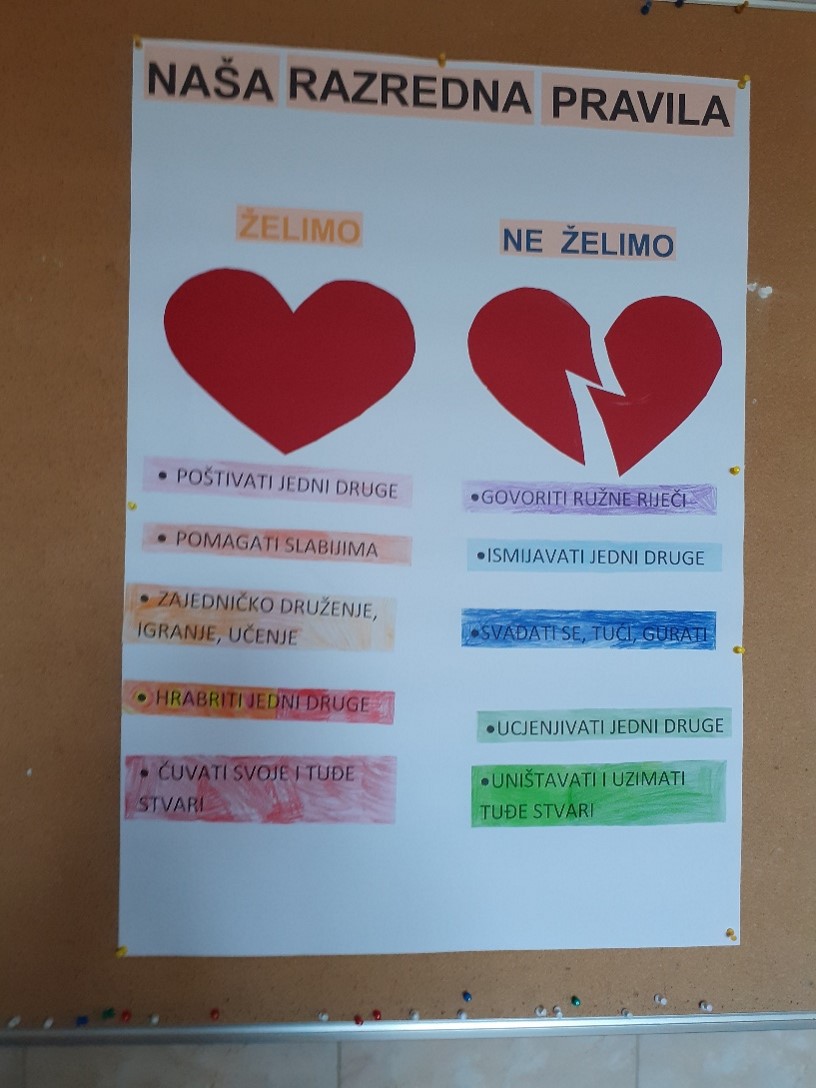 NAŠA RAZREDNA PRAVILA
ŽELIMO
• POŠTIVATI JEDNI DRUGE
• POMAGATI SLABIJIMA
• ZAJEDNIČKO DRUŽENJE,
IGRANJE, UČENJE
• HRABRITI JEDNI DRUGE
• ČUVATI SVOJE I TUĐE
STVARI
NE ŽELIMO
•GOVORITI RUŽNE RIJEČI
•ISMIJAVATI JEDNI DRUGE
•SVAĐATI SE, TUĆI, GURATI
•UCJENJIVATI JEDNI DRUGE
•UNIŠTAVATI I UZIMATI
TUĐE STVARI